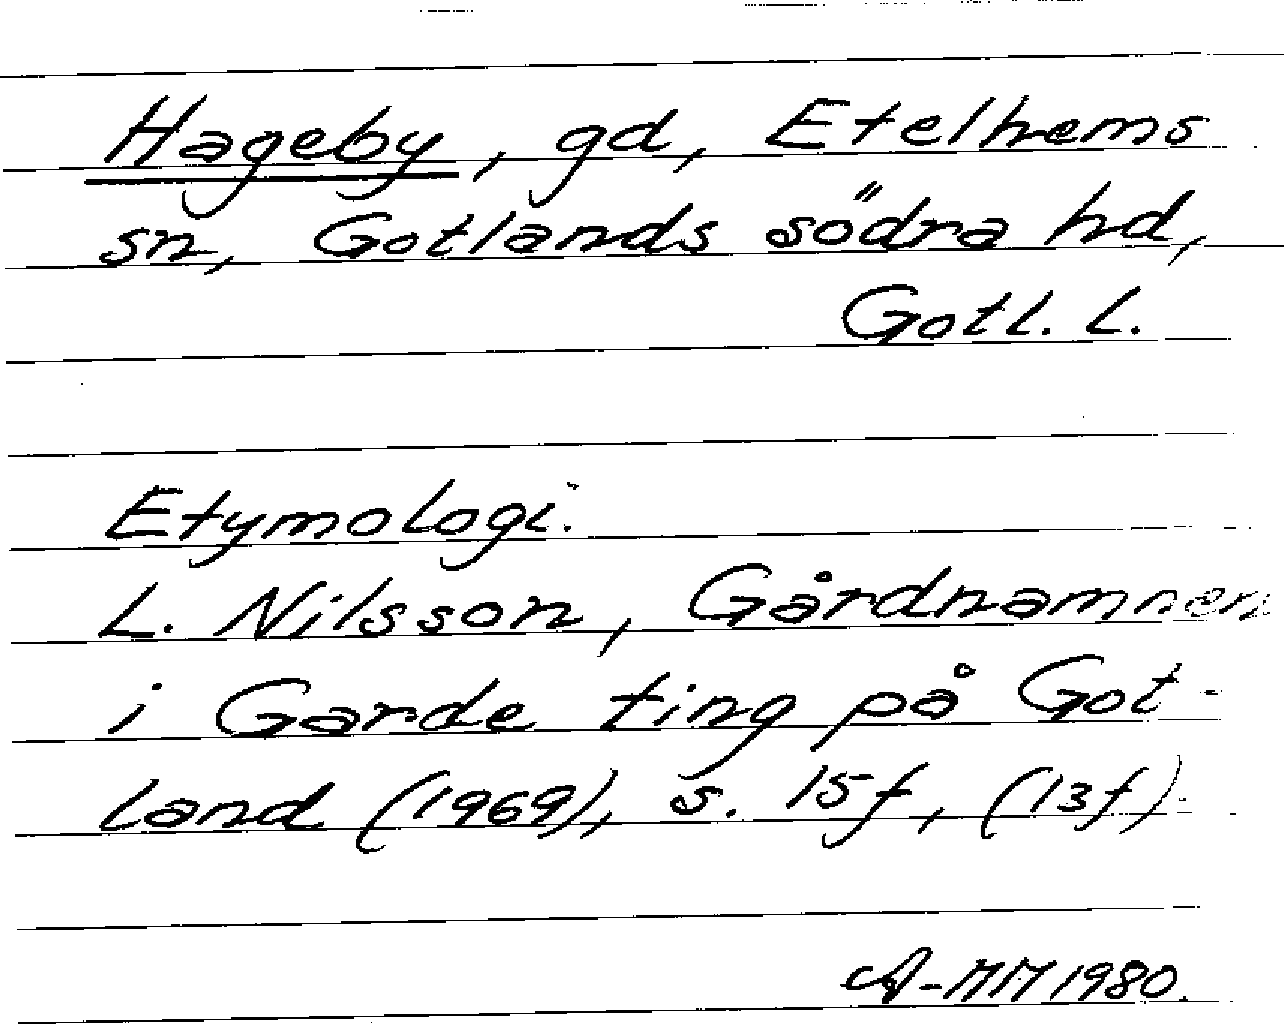 Hageby, gd, Etelhems
sn, Gotlands södra hd,
Gotl. l.
Etymologi.
L. Nilsson, Gårdnamnen
i Garde ting på Got-
land (1969), s. 15f, (13f).
A-MM 1980.